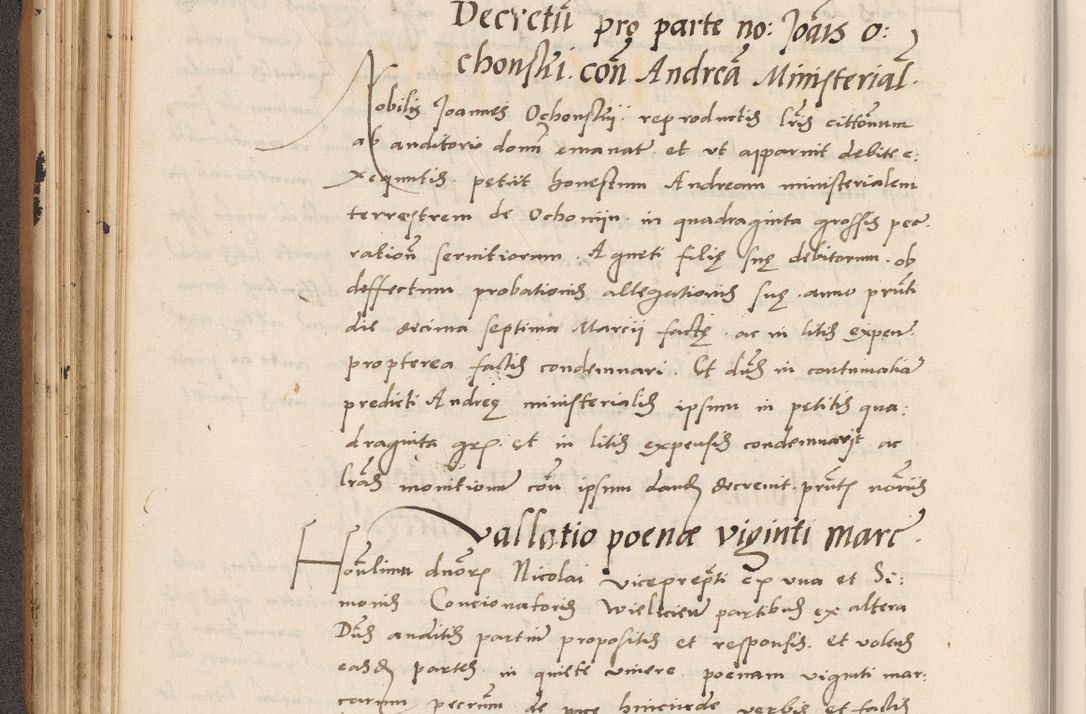 Decretū pro parte no: Joānis O:
chonskii. con̄ Andreā Ministerial.
Nobilis Joannes Ochonskij. reproductis lr̄is cittōnum
ab auditorio domi emanat. et ut apparuit debite e:
xequutis. petiit honestum Andream ministerialem
terręstrem de Ochonijn. in quadraginta grossis pec.
ration̄ seruitiorum. Agneti filię suę debitorum. ob
deffectum probationis allegationis suę. anno prn̄ti
die decima septima Marcii factę. ac in litis expen.
propterea factis condemnari. Et dn̄s in contumatia
predicti Andreę ministerialis ipsum in petitis qua:
draginta gr. et in litis expensis condemnavit ac
lrās monitione con̄ ipsum dandas decrevit. prn̄t norūs
Vallatio poenæ viginti marc.
Honlium dn̄or Nicolai viceprep̄ti ex una et Si:
monis Concionatoris Wielicien partibus ex altera
Dn̄s auditis partium propositis et responsis. et volens
easd partes. in quiete vivere. poenam viginti mar:
carum pecrum. de pace hincinde verbis et factis